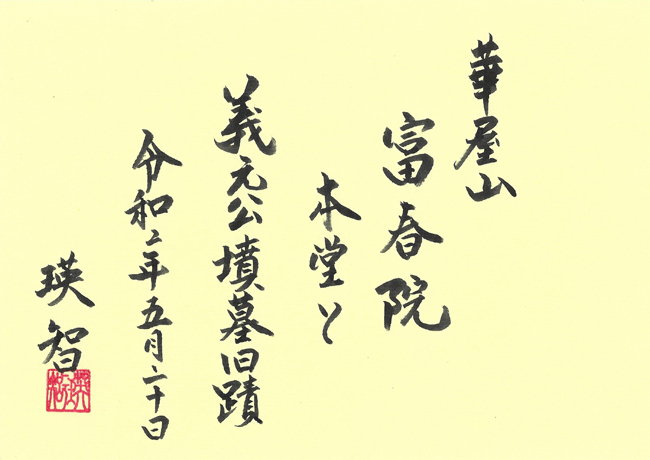 華屋山
富春院
本堂と
義元公墳墓旧蹟
令和二年五月二十日
瑛智